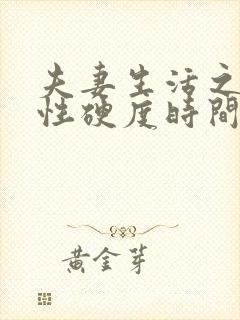 夫妻生活之
性硬度時間
黃金芽